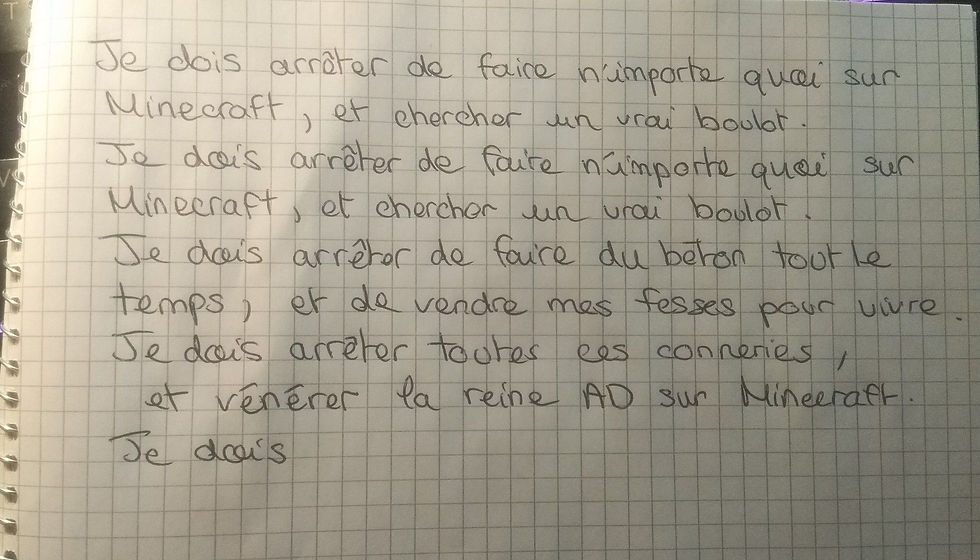 Je dois arrêter de faire n'importe quoi sur
Minecraft, et chercher un vrai boulot.
Je dois arrêter de faire n'importe quoi sur
Minecraft, et chercher un vrai boulot.
Je dois arrêter de faire du béton tout le
temps, et de vendre mes fesses pour vivre.
Je dois arrêter toutes ces conneries,
et vénérer la reine AD sur Minecraft.
Je dois